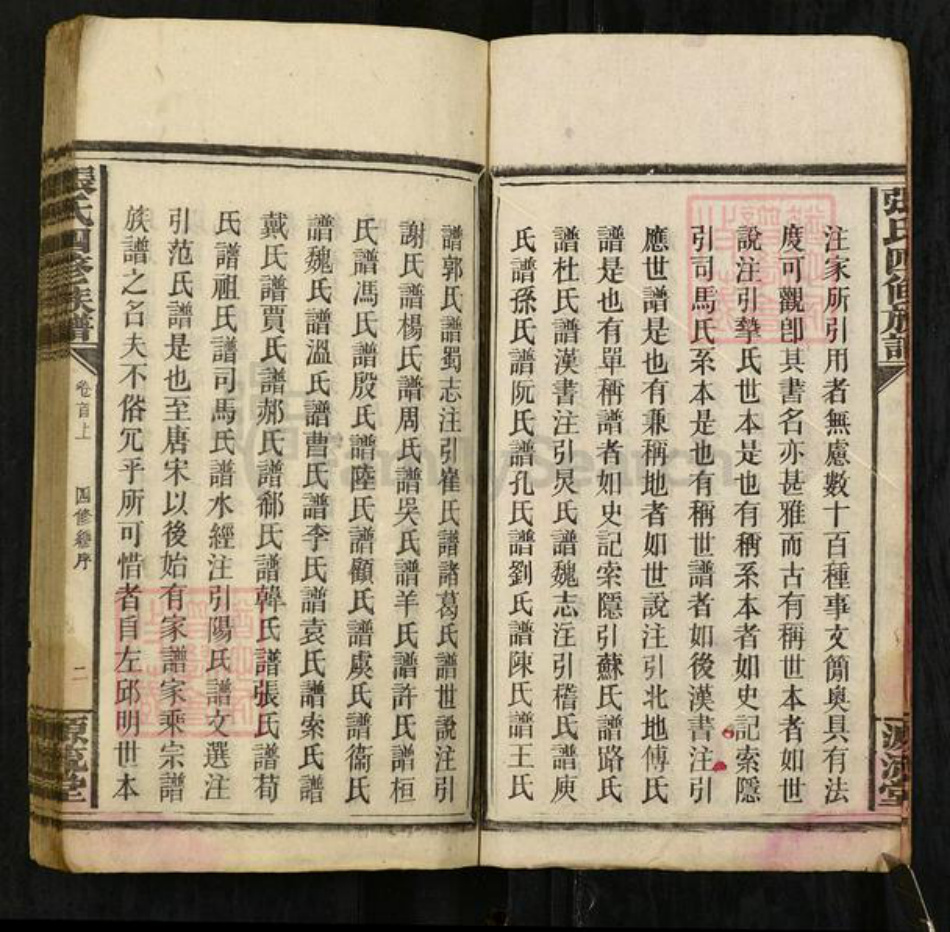 注家所引用者無慮數十百種事文簡奧具有法
度可觀卽其書名亦甚雅而古有稱世本者如世
說注引摯氏世本是也有稱系本者如史記索隱
引司馬氏系本是也有稱世譜者如後漢書注引
應世譜是也有兼稱地者如世說注引北地傅氏
譜是也有單稱譜者如史記索隱引蘇氏譜路氏
譜杜氏譜漢書注引炅氏譜魏志注引嵇氏譜庾
氏譜孫氏譜阮氏譜孔氏譜劉氏譜陳氏譜王氏
譜郭氏譜蜀志注引崔氏譜諸葛氏譜世說注引
謝氏譜楊氏譜周氏譜吳氏譜羊氏譜許氏譜桓
氏譜馮氏譜殷氏譜陸氏譜顧氏譜虞氏譜衞氏
譜魏氏譜溫氏譜曹氏譜李氏譜袁氏譜索氏譜
戴氏譜賈氏譜郝氏譜郗氏譜韓氏譜張氏譜荀
氏譜祖氏譜司馬氏譜水經注引陽氏譜文選注
引范氏譜是也至唐宋以後始有家譜家乘宗譜
族譜之名夫不俗冗乎所可惜者自左邱明世本
張氏四修族譜
卷首上
四修總序
二
源流堂
張氏四修族譜
源流堂
FamilySearch